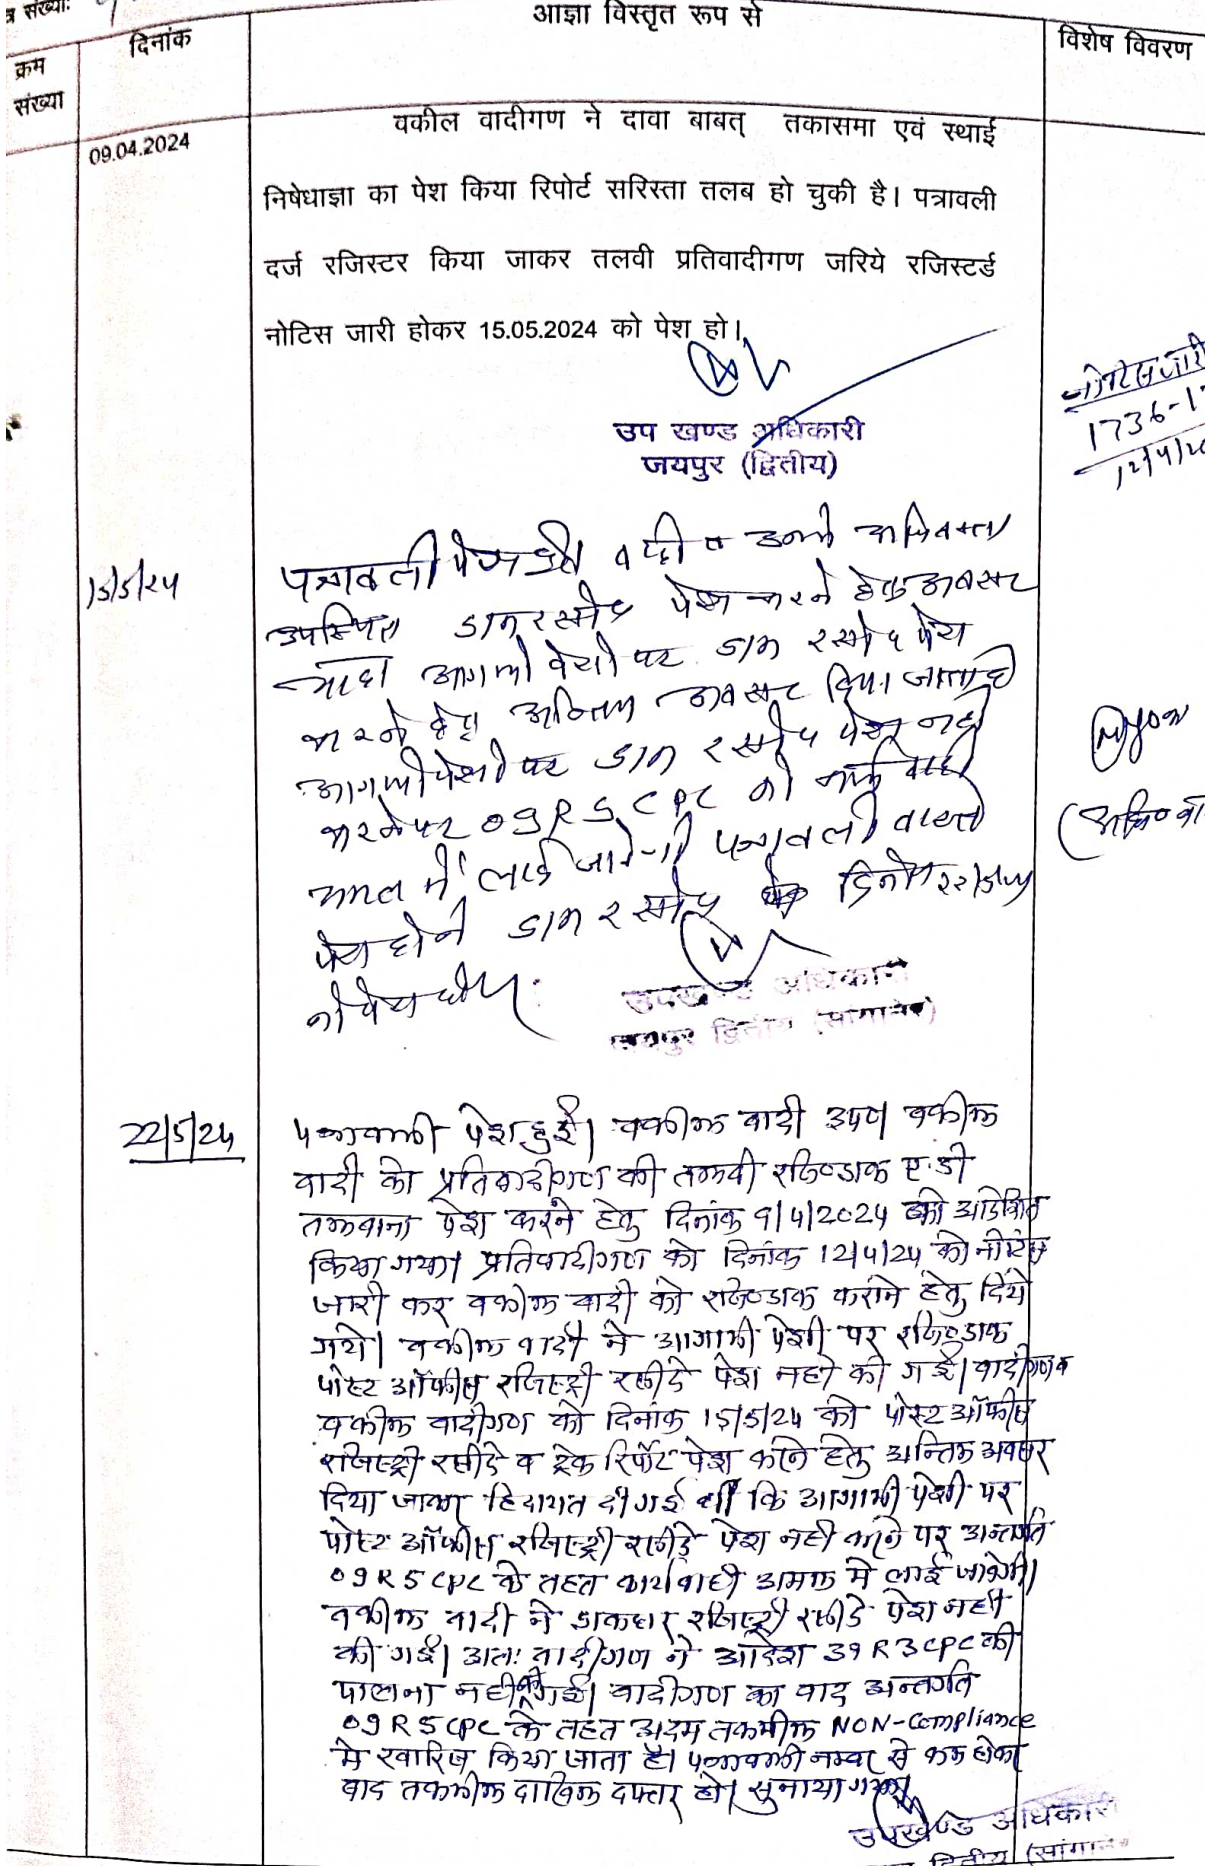 त्र संख्याः
क्रम संख्या
दिनांक
आज्ञा विस्तृत रूप से
विशेष विवरण
09.04.2024
वकील वादीगण ने दावा बाबत् तकासमा एवं स्थाई
निषेधाज्ञा का पेश किया रिपोर्ट सरिस्ता तलब हो चुकी है। पत्रावली
दर्ज रजिस्टर किया जाकर तलवी प्रतिवादीगण जरिये रजिस्टर्ड
नोटिस जारी होकर 15.05.2024 को पेश हो।
उप खण्ड अधिकारी
जयपुर (द्वितीय)
नोटिस जारी
1736-1
12/4/20
15/5/24
पत्रावली पेश हुई वादी व उनके अधिवक्ता
उपस्थित डाक रसीद पेश करने हेतु अवसर
चाहा आगामी पेशी पर डाक रसीद पेश
करने हेतु अन्तिम अवसर दिया जाता है
आगामी पेशी पर डाक रसीद पेश नही
करने पर 09 R 5 CPC की कार्यवाही
अमल में लाई जावेगी पत्रावली वास्ते
पेश होने डाक रसीद दिनांक 22/5/24
को पेश होवे
उपखण्ड अधिकारी
जयपुर द्वितीय (सांगानेर)
22/5/24
पत्रावली पेश हुई। वकील वादी उप० वकील
वादी को प्रतिवादीगण की तलवी रजि०डाक ए.डी
तलवाना पेश करने हेतु दिनांक 9/4/2024 को आदेशित
किया गया। प्रतिवादीगण को दिनांक 12/4/24 को नोटिस
जारी कर वकील वादी को रजि०डाक कराने हेतु दिये
गये। वकील वादी ने आगामी पेशी पर रजि०डाक
पोस्ट ऑफीस रजिस्ट्री रसीदे पेश नही की गई। वादीगण व
वकील वादीगण को दिनांक 15/5/24 को पोस्ट ऑफीस
रजिस्ट्री रसीदे व ट्रेक रिर्पोट पेश करने हेतु अन्तिम अवसर
दिया जाकर हिदायत दी गई थी कि आगामी पेशी पर
पोस्ट ऑफीस रजिस्ट्री रसीदे पेश नही करने पर अन्तर्गत
09 R 5 CPC के तहत कार्यवाही अमल मे लाई जावेगी।
वकील वादी ने डाकघर रजिस्ट्री रसीदे पेश नही
की गई। अतः वादीगण ने आदेश 39 R 3 CPC की
पालना नही की गई। वादीगण का वाद अन्तर्गत
09 R 5 CPC के तहत अदम तकमील NON-Compliance
मे खारिज किया जाता है। पत्रावली नम्बर से कम होकर
बाद तकमील दाखिल दफ्तर हो। सुनाया गया।
उपखण्ड अधिकारी
द्वितीय (सांगाने